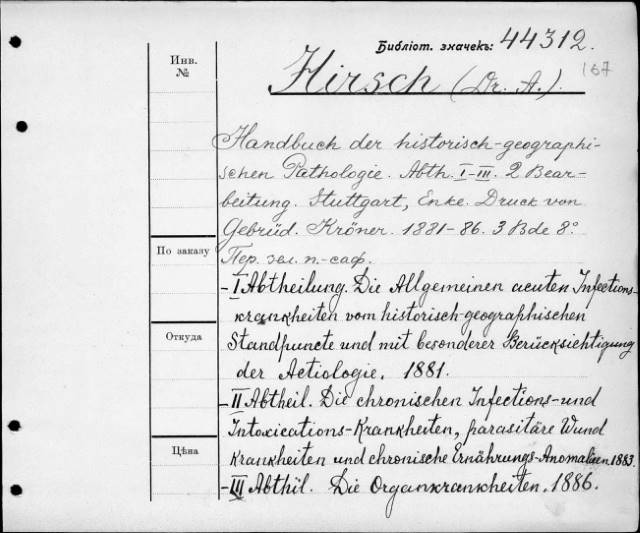 Библіот. значекъ: 44312.
Инв. №
167
Hirsch (Dr. A.).
Handbuch der historisch-geographi-
schen Pathologie. Abth. I-III. 2 Bear-
beitung. Stuttgart, Enke. Druck von
Gebrüd. Kröner. 1881-86. 3 Bde 8°
По заказу
Пер. зел. п.-саф.
- I Abtheilung. Die Allgemeinen acuten Infections-
krankheiten vom historisch-geographischen
Откуда
Standpuncte und mit besonderer Berücksichtigung
der Aetiologie. 1881.
- II Abtheil. Die chronischen Infections- und
Intoxications-Krankheiten, parasitäre Wund
Цѣна
krankheiten und chronische Ernährungs-Anomalieen. 1883
- III Abthil. Die Organkrankheiten. 1886.